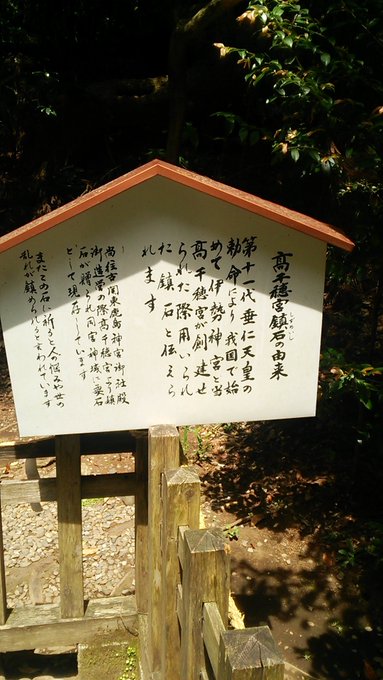 高千穂宮鎮石の由来
しずめいし
第十一代 垂仁天皇の
勅命により 我国で始
めて 伊勢神宮と当
高千穂宮が創建せ
られた際用いられ
た鎮石と伝えら
れます
尚往古関東鹿島神宮御社殿
御造営の際高千穂宮より鎮
石が贈られ同宮神域に要石
として現存しています
またこの石に祈ると人の悩み世の
乱れが鎮められると言われています